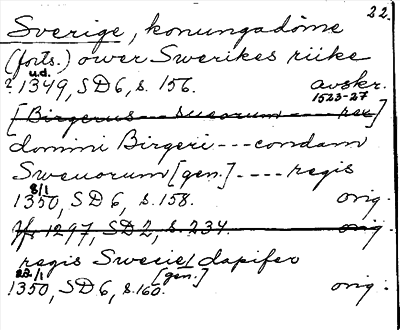 22.
Sverige, konungadöme
(forts.) ower Swerikes riike
u.d.
? 1349, SD 6, s. 156. avskr.
1523-27
[Birgerus --- sueorum --- rex]
domini Birgeri --- condam
Sweuorum [gen.] ---- regis
8/1
1350, SD 6, s. 158. orig.
1297, SD 2, s. 234. orig.
regis Swecie / dapifer
[gen.]
22/1
1350, SD 6, s. 160. orig.